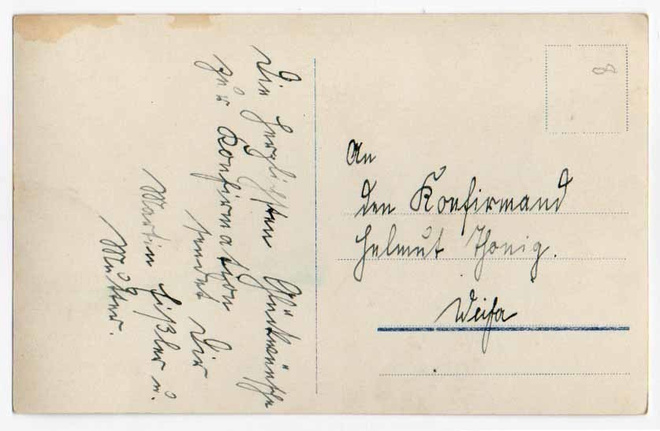 Die herzlichsten Glückwünsche
zur Konfirmation
sendet Dir
Martin Fißler u.
Mutter.
An
den Konfirmand
Helmut Thonig.
Weifa
8